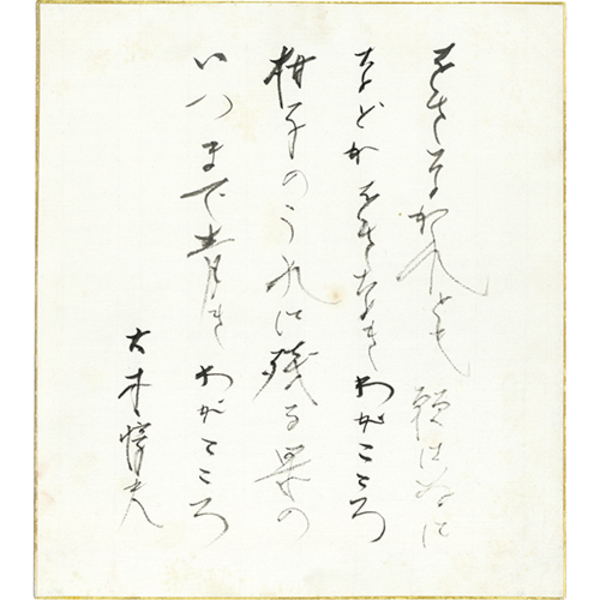 をさなかれとも 願はぬに
などかをさなき わがこころ
柑子のうれに残る果の
いつまで青き わがこころ
大木惇夫